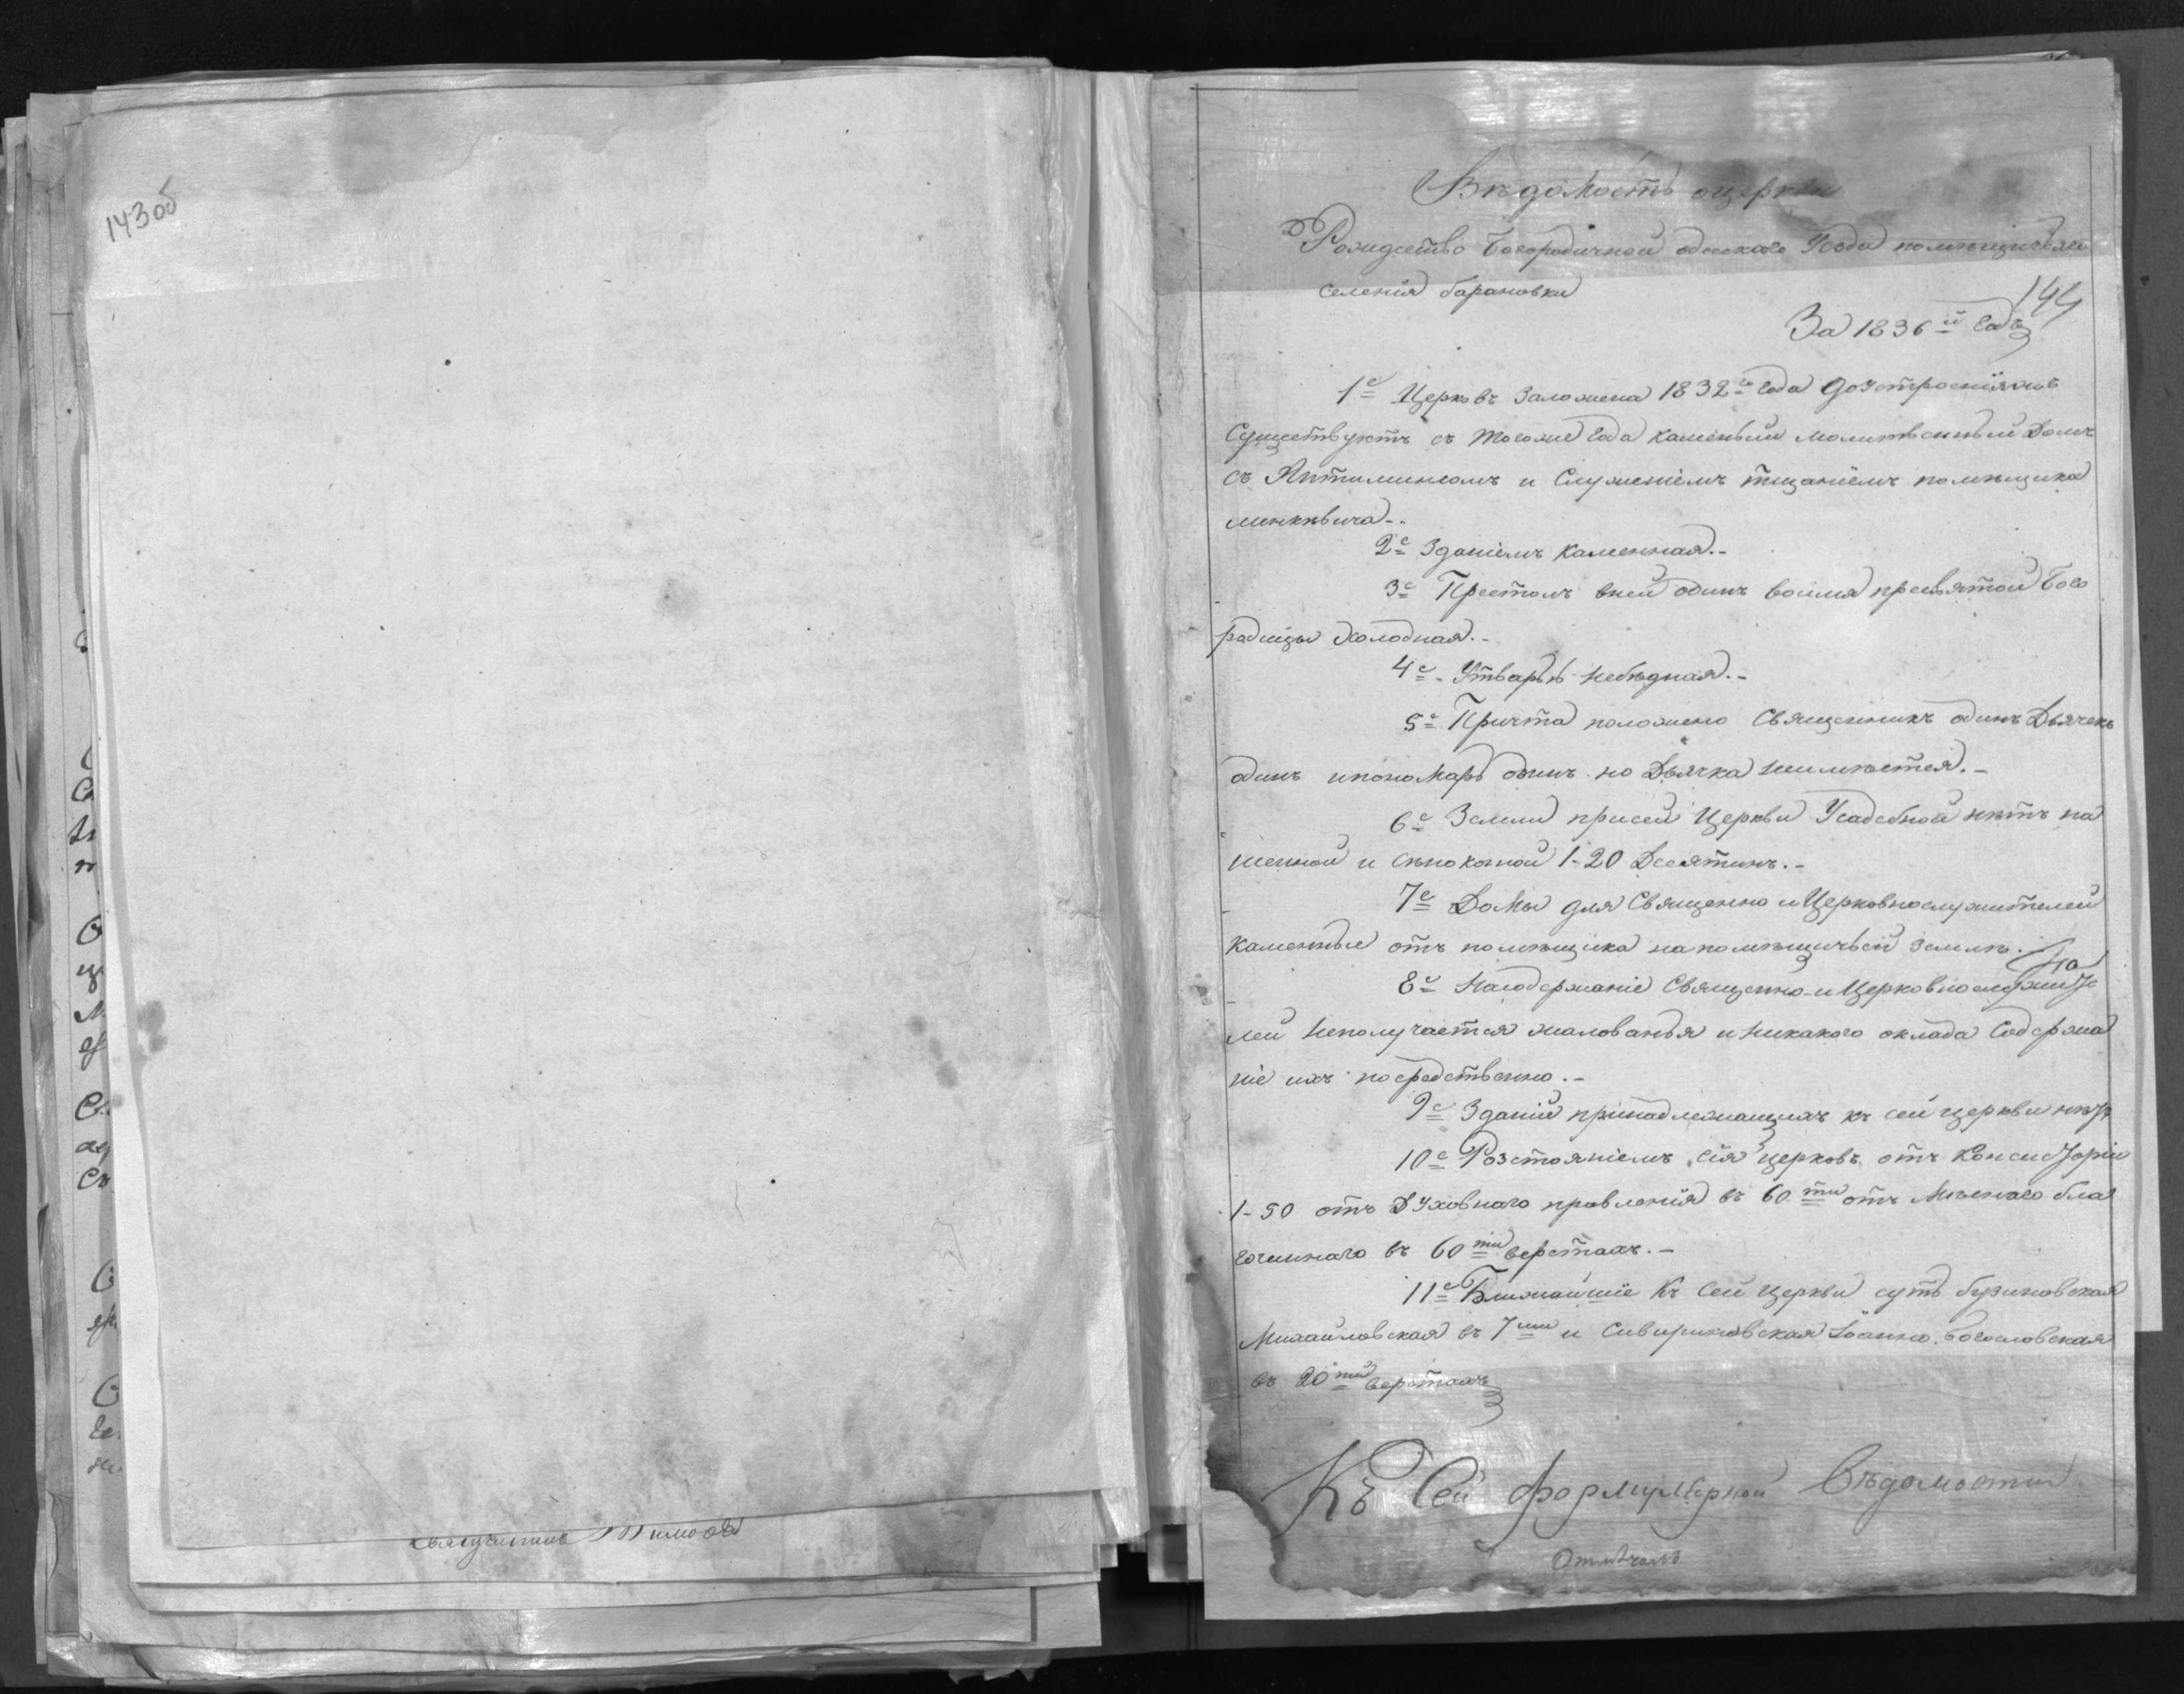 143об
Вѣдомость оцеркви
Рождество Богородичной одесскаго Уезда помѣщичьяго
селенія барановки
144
За 1836й годъ
1е Церковь Заложена 1832го года До устроенія
Существуетъ съ тогоже года каменный молитвенный Домъ
съ Антиминсомъ и Служеніемъ тщаніемъ помѣщика
2е Зданіемъ каменная.-
3е Престолъ вней одинъ воимя пресвятой Бого
родицы Холодная.-
4е - Утварь небѣдная.-
5е Причта положено Священникъ одинъ Дьячекъ
одинъ ипономарь одинъ но Дьячка неимѣется.-
6е Земли присей Церкви Усадебной нѣтъ па
шенной и сѣнокосной 1-20 Десятинъ.-
7е Домы для Священно и Церковнослужителей
каменные отъ помѣщика напомѣщичьей землѣ.
8е Насодержаніе Священно-и Церковнослужите
лей неполучается жалованья и никакого оклада Содержа
ніе ихъ посредственно.-
9е Зданій принадлежащихъ къ сей церкви нѣтъ
10е Розстояніемъ сія церковь отъ Консисторіи
1-50 отъ Духовнаго правленія въ 60ти отъ Мѣснаго бла
гочиннаго въ 60ти верстахъ.-
11е Ближайшіе Къ Сей церкви суть бузиновская
Михайловская въ 7ми и Сивириновская Іоанно-богословская
въ 20ти верстахъ
Къ Сей формулярной Вѣдомости
Отмѣчалъ